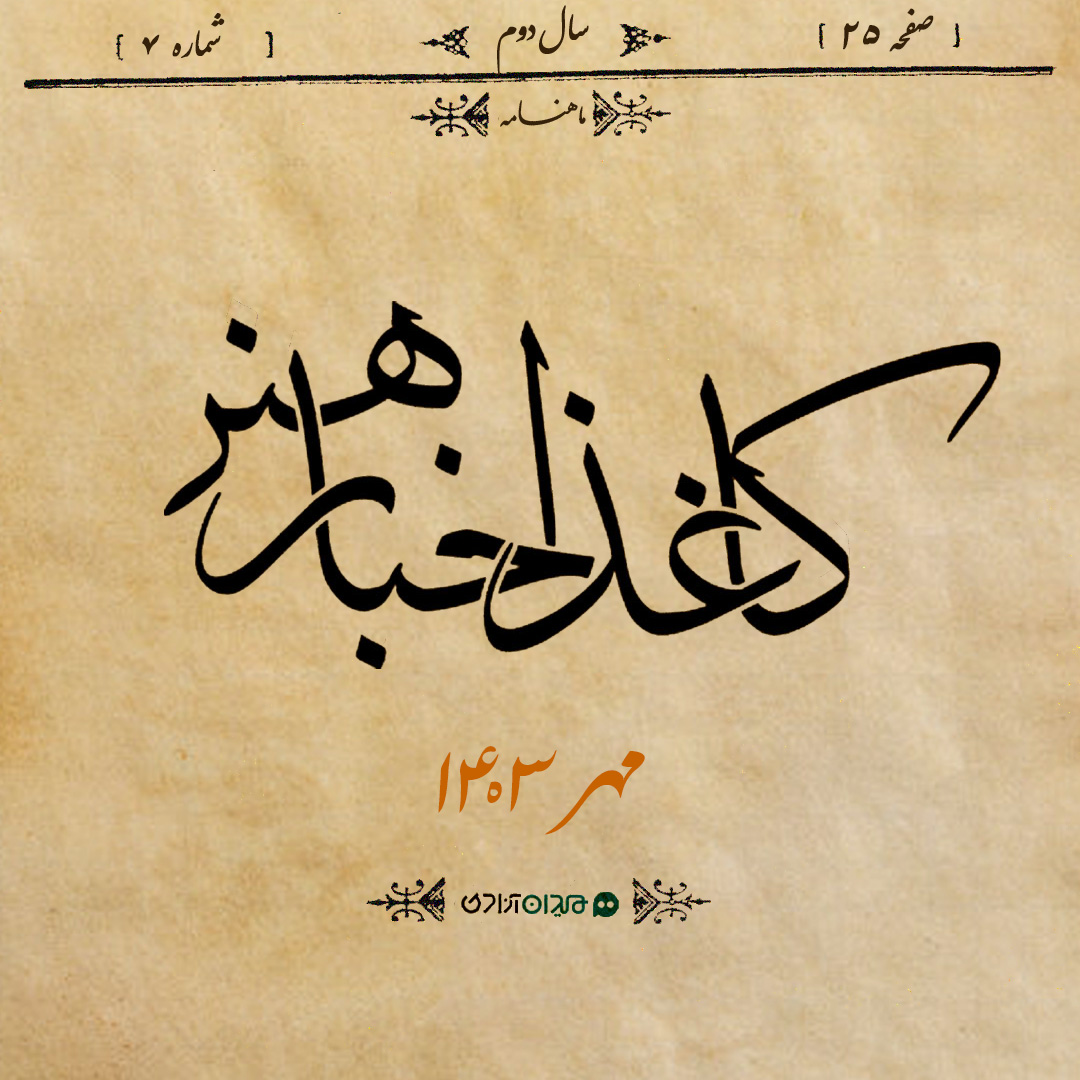 [ صفحه ۲۵ ] سال دوم [ شماره ۷ ]
ماهنامه
کاغذ اخبار هنر
مهر ۱۴۰۳
میدان آزادی